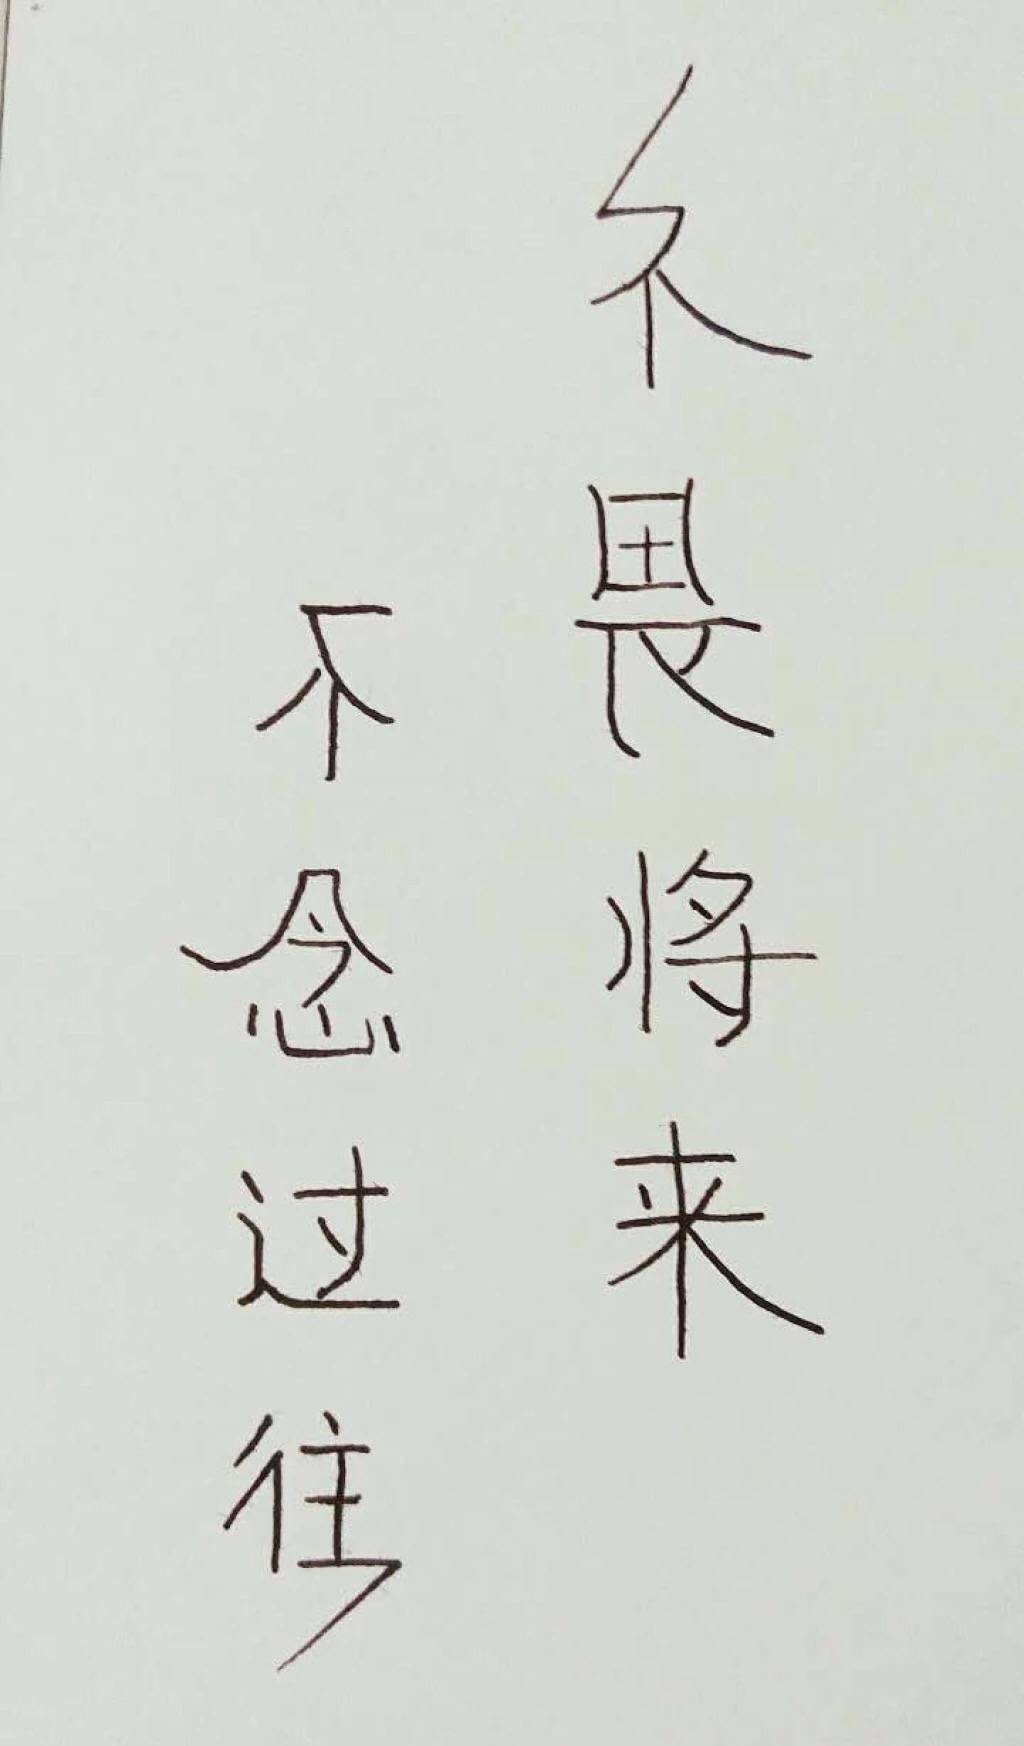 不畏将来
不念过往